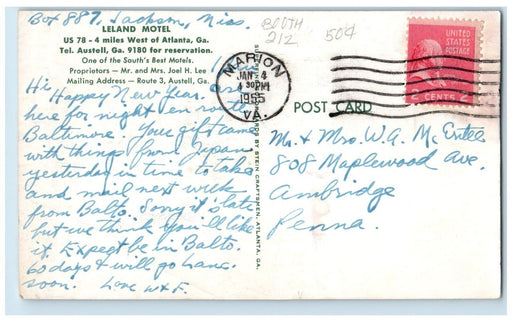 Box 887, Jackson, Miss.
LELAND MOTEL
US 78 - 4 miles West of Atlanta, Ga.
Tel. Austell, Ga. 9180 for reservation.
One of the South's Best Motels.
Proprietors — Mr. and Mrs. Joel H. Lee
Mailing Address — Route 3, Austell, Ga.
Hi:
Happy New Year. Are
here for night en route
Baltimore. Your gift came
with things from Japan
yesterday in time to take
and mail next week
from Balto. Sorry it's late
but we think you'll like
it. Expect be in Balto.
60 days & will go Lanc.
soon. Love W & F.
BOOTH
212
50¢
MARION
JAN 4
4 30 PM
1955
VA.
UNITED
STATES
POSTAGE
2 CENTS 2
POST CARD
BY STEIN CRAFTSMEN, ATLANTA, GA.
Mr. & Mrs. W.A. McEntee
808 Maplewood Ave.
Ambridge
Penna.